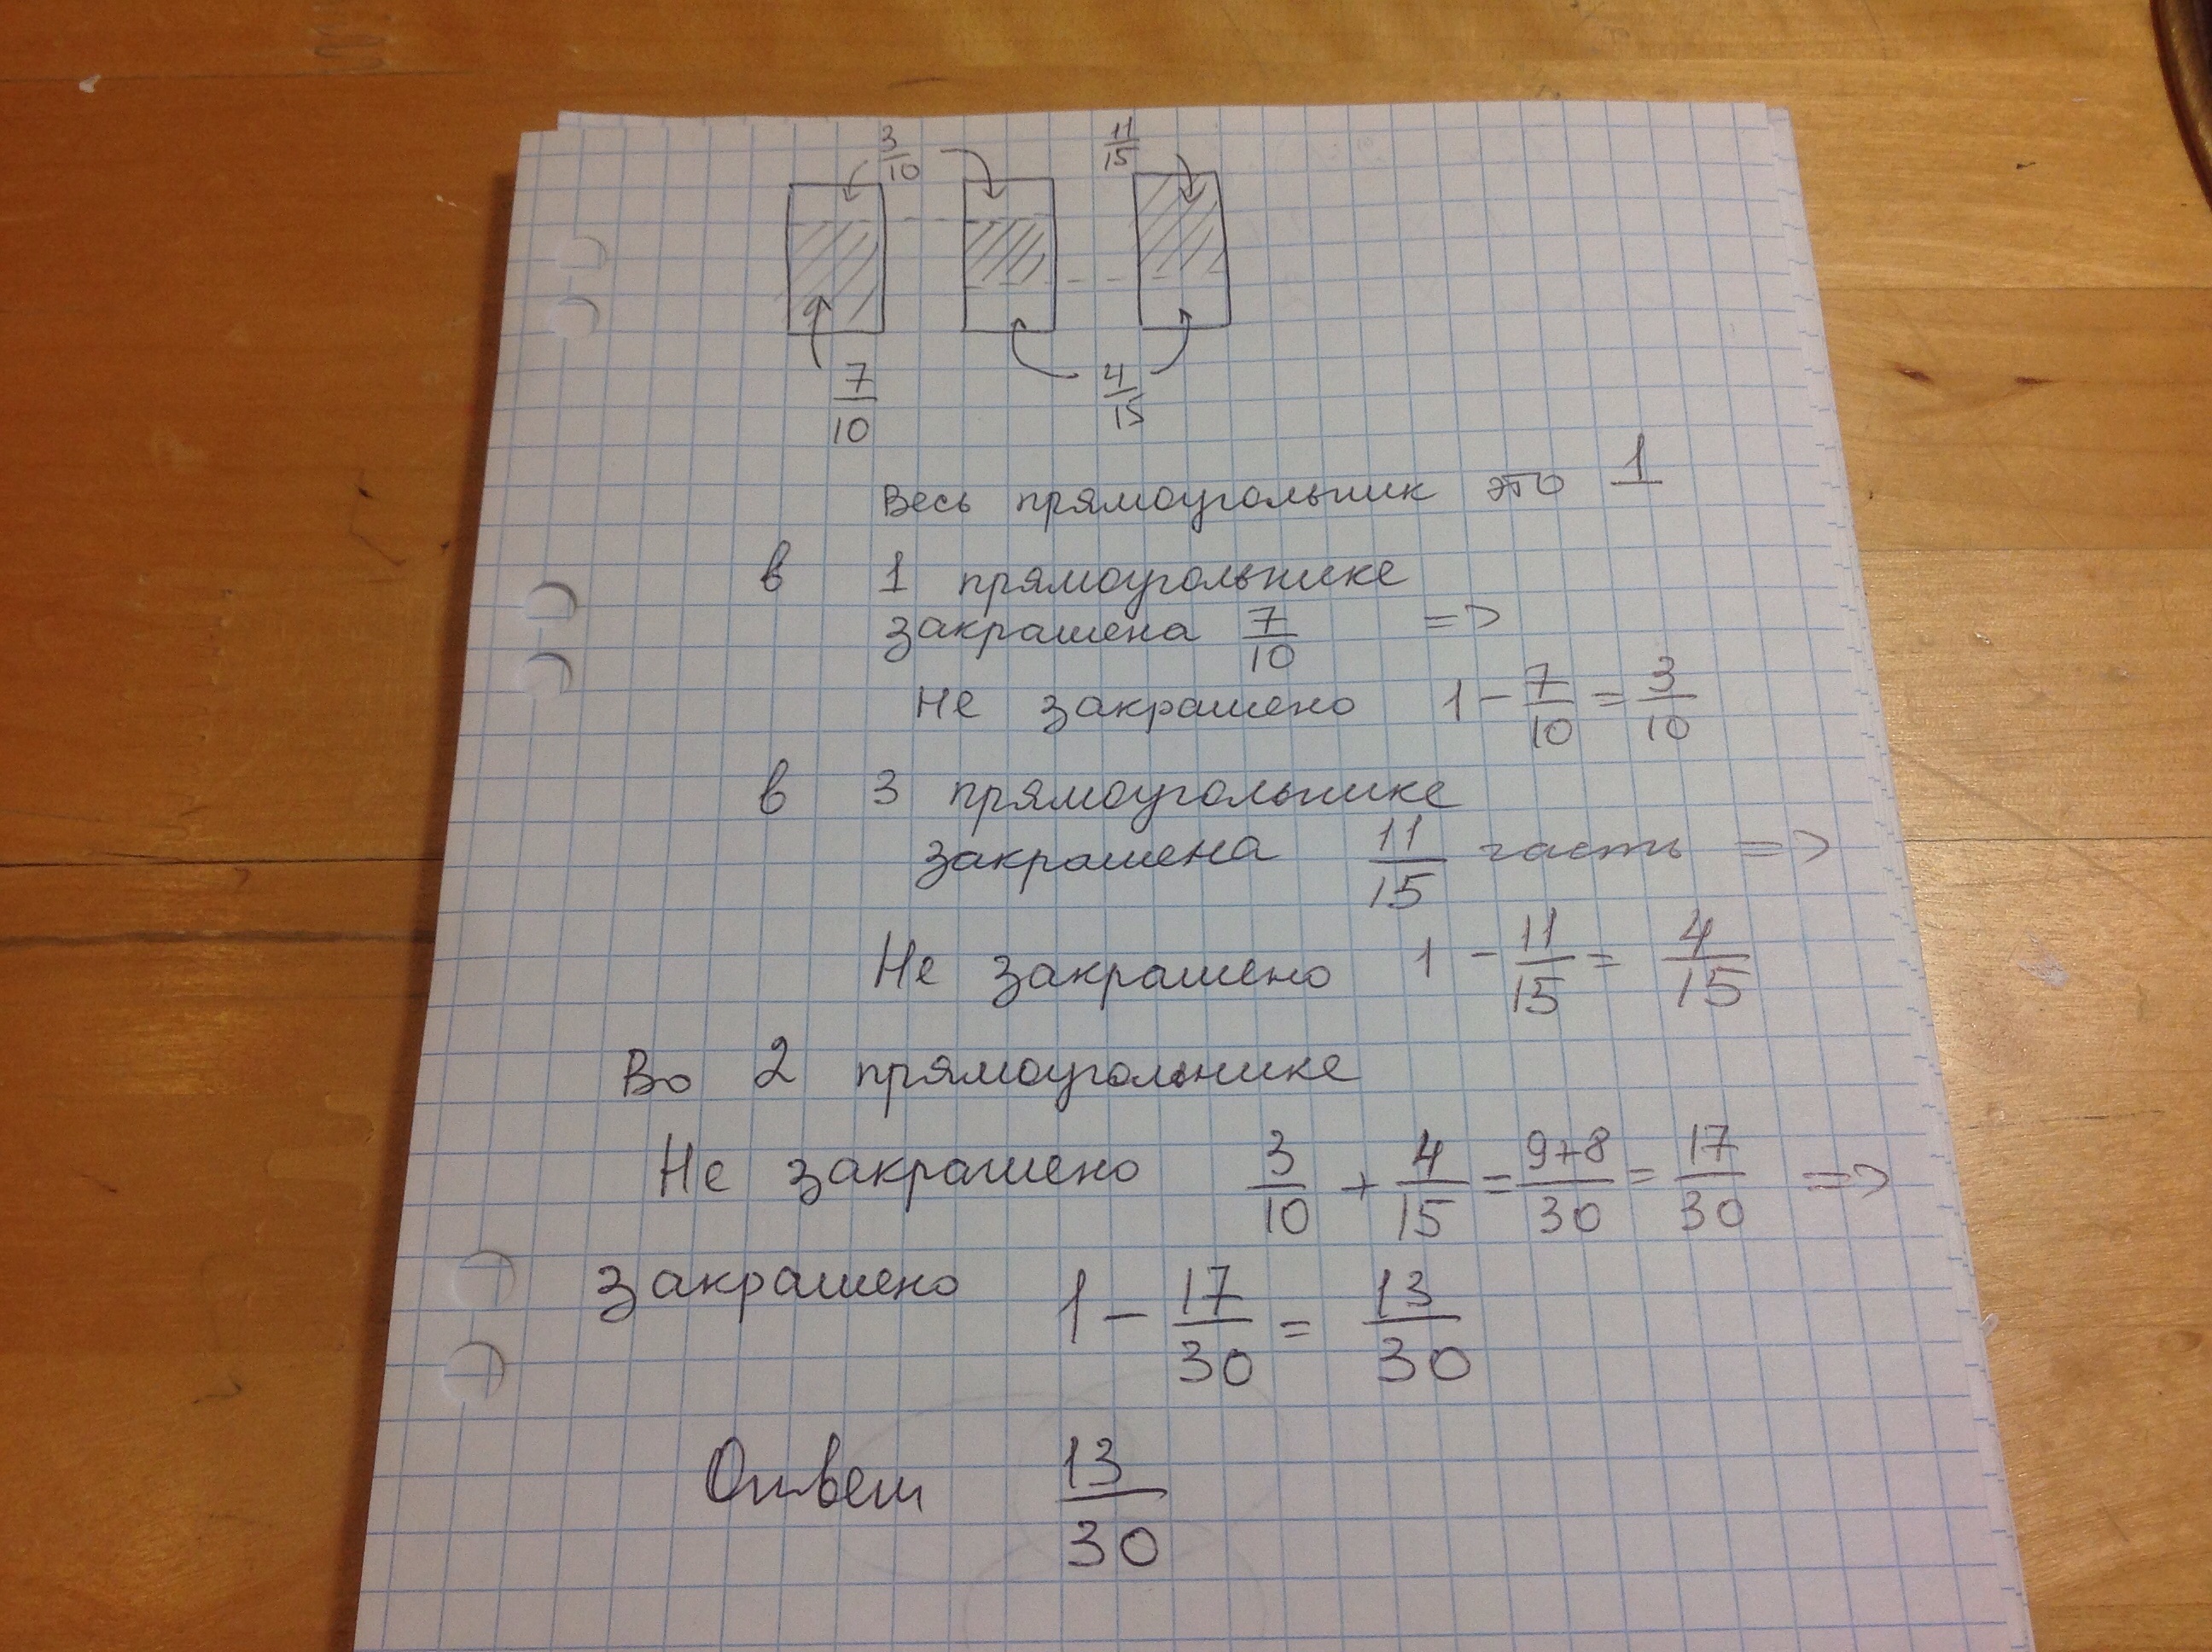 3/10 11/15
7/10 4/15
Весь прямоугольник это 1
в 1 прямоугольнике
закрашена 7/10 =>
Не закрашено 1 - 7/10 = 3/10
в 3 прямоугольнике
закрашена 11/15 часть =>
Не закрашено 1 - 11/15 = 4/15
Во 2 прямоугольнике
Не закрашено 3/10 + 4/15 = 9+8/30 = 17/30 =>
закрашено 1 - 17/30 = 13/30
Ответ 13/30